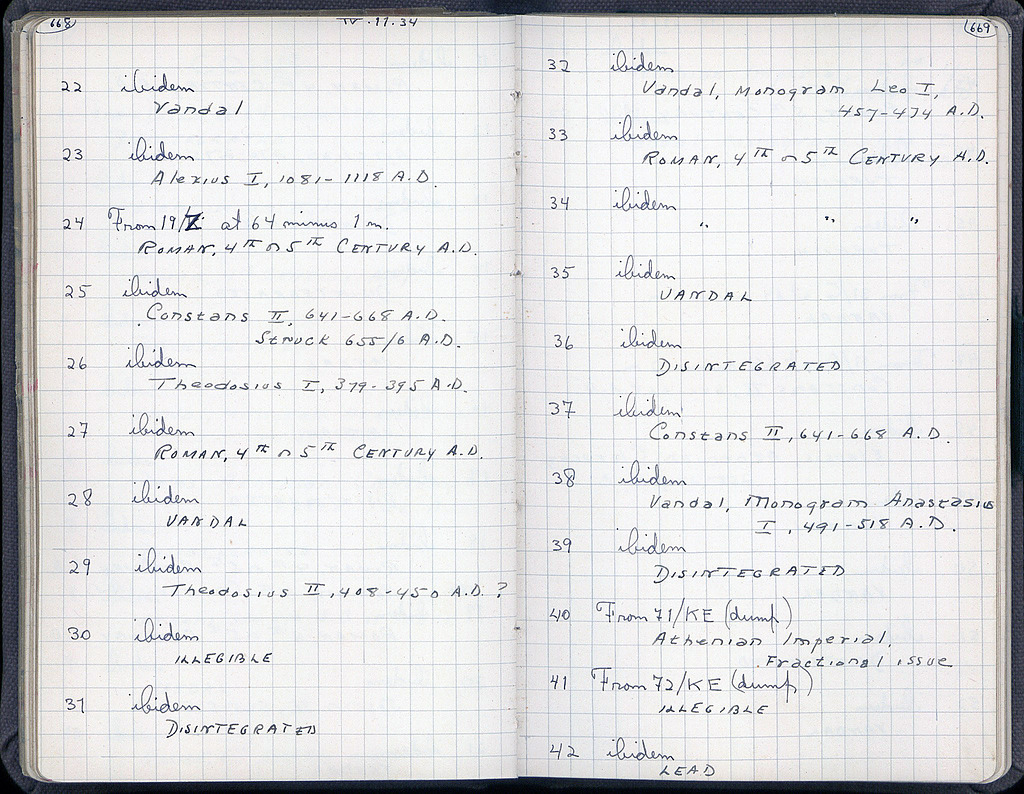 668
IV.17.34
22 ibidem
Vandal
23 ibidem
Alexius I, 1081-1118 A.D.
24 From 19/Z at 64 minus 1 m.
ROMAN, 4TH or 5TH CENTURY A.D.
25 ibidem
Constans II, 641-668 A.D.
Struck 655/6 A.D.
26 ibidem
Theodosius I, 379-395 A.D.
27 ibidem
ROMAN, 4TH or 5TH CENTURY A.D.
28 ibidem
VANDAL
29 ibidem
Theodosius II, 408-450 A.D. ?
30 ibidem
ILLEGIBLE
31 ibidem
DISINTEGRATED
669
32 ibidem
Vandal, Monogram Leo I,
457-474 A.D.
33 ibidem
ROMAN, 4TH or 5TH CENTURY A.D.
34 ibidem
" " "
35 ibidem
VANDAL
36 ibidem
DISINTEGRATED
37 ibidem
Constans II, 641-668 A.D.
38 ibidem
Vandal, Monogram Anastasius
I, 491-518 A.D.
39 ibidem
DISINTEGRATED
40 From 71/KE (dump)
Athenian Imperial,
Fractional issue
41 From 72/KE (dump)
ILLEGIBLE
42 ibidem
LEAD